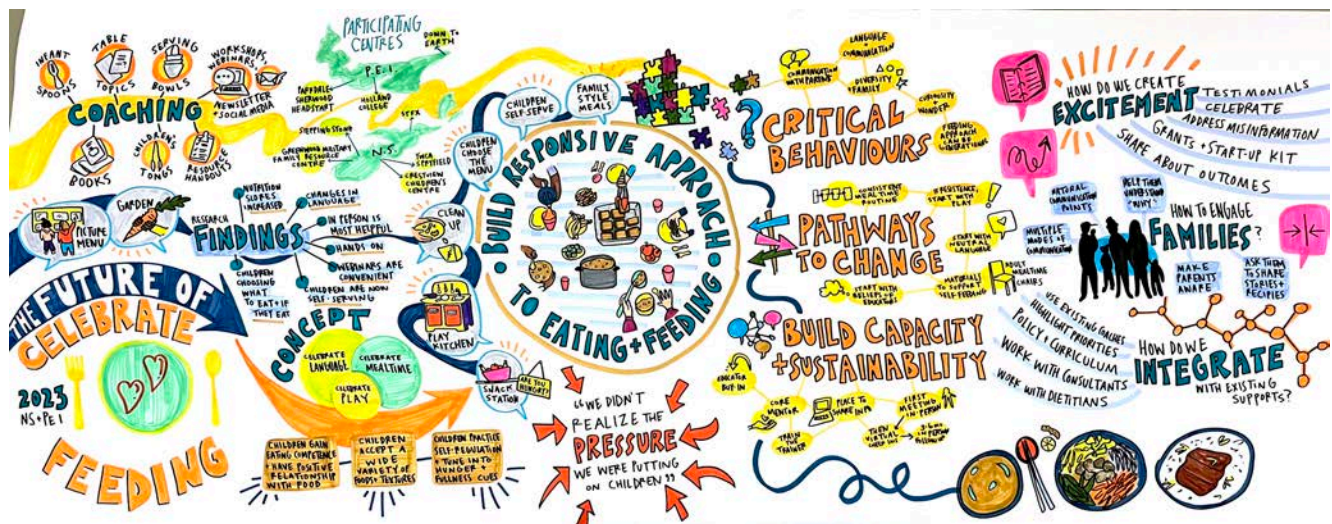 COACHING
INFANT
SPOONS
TABLE
TOPICS
SERVING
BOWLS
WORKSHOPS,
WEBINARS,
NEWSLETTER
+ SOCIAL MEDIA
BOOKS
CHILDREN'S
TONGS
RESOURCE
HANDOUTS
PARTICIPATING
CENTRES
DOWN TO
EARTH
P.E.I
PARKDALE-
SHERWOOD
HEADSTART
HOLLAND
COLLEGE
STEPPING STONE
GREENWOOD MILITARY
FAMILY RESOURCE
CENTRE
N.S.
STFX
YMCA
CRESTVIEW
CHILDREN'S
CENTRE
PICTURE
MENU
GARDEN
RESEARCH
FINDINGS
NUTRITION
SCORES
INCREASED
CHANGES IN
LANGUAGE
IN PERSON IS
MOST HELPFUL
HANDS ON
WEBINARS ARE
CONVENIENT
CHILDREN ARE NOW
SELF-SERVING
CHILDREN
CHOOSING
WHAT
TO EAT + IF
THEY EAT
THE FUTURE OF
CELEBRATE
FEEDING
2023
NS + PEI
CONCEPT
CELEBRATE
LANGUAGE
CELEBRATE
MEALTIME
CELEBRATE
PLAY
CHILDREN GAIN
EATING COMPETENCE
+ HAVE POSITIVE
RELATIONSHIP
WITH FOOD
CHILDREN
ACCEPT A
WIDE
VARIETY OF
FOODS + TEXTURES
CHILDREN PRACTICE
SELF-REGULATION
+ TUNE INTO
HUNGER +
FULLNESS CUES
CHILDREN
SELF-SERVE
FAMILY
STYLE
MEALS
CHILDREN
CHOOSE
THE
MENU
CLEAN
UP
PLAY
KITCHEN
SNACK
STATION
ARE YOU
HUNGRY?
BUILD RESPONSIVE APPROACH
TO EATING + FEEDING
"WE DIDN'T
REALIZE THE
PRESSURE
WE WERE PUTTING
ON CHILDREN"
CRITICAL
BEHAVIOURS
COMMUNICATION
WITH PARENTS
LANGUAGE +
COMMUNICATION
DIVERSITY
+ FAMILY
CURIOSITY
+ WONDER
FEEDING
APPROACH
CAN BE
GENERATIONAL
PATHWAYS
TO CHANGE
CONSISTENT
MEALTIME
ROUTINE
IF RESISTENCE,
START WITH
PLAY
START WITH
NEUTRAL
LANGUAGE
START WITH
BELIEFS OF
EDUCATORS
MATERIALS
TO SUPPORT
SELF-FEEDING
ADULT
MEALTIME
CHAIRS
BUILD CAPACITY
+ SUSTAINABILITY
EDUCATOR
BUY IN
CORE
MENTOR
TRAIN
THE
TRAINER
PLACE TO
SHARE INFO
FIRST
MEETING
IN PERSON
THEN
VIRTUAL
CHECK INS
3-6 MO
IN PERSON
FOLLOW UP
HOW DO WE CREATE
EXCITEMENT
TESTIMONIALS
CELEBRATE
ADDRESS MISINFORMATION
GRANTS + START-UP KIT
SHARE ABOUT OUTCOMES
HOW TO ENGAGE
FAMILIES?
NATURAL
COMMUNICATION
POINTS
HELP THEM
UNDERSTAND
"WHY"
MULTIPLE
MODES OF
COMMUNICATION
MAKE
PARENTS
AWARE
ASK THEM
TO SHARE
STORIES +
RECIPES
HOW DO WE
INTEGRATE
WITH EXISTING
SUPPORTS?
USE EXISTING COACHES
HIGHLIGHT PRIORITIES
POLICY + CURRICULUM
WORK WITH CONSULTANTS
WORK WITH DIETITIANS